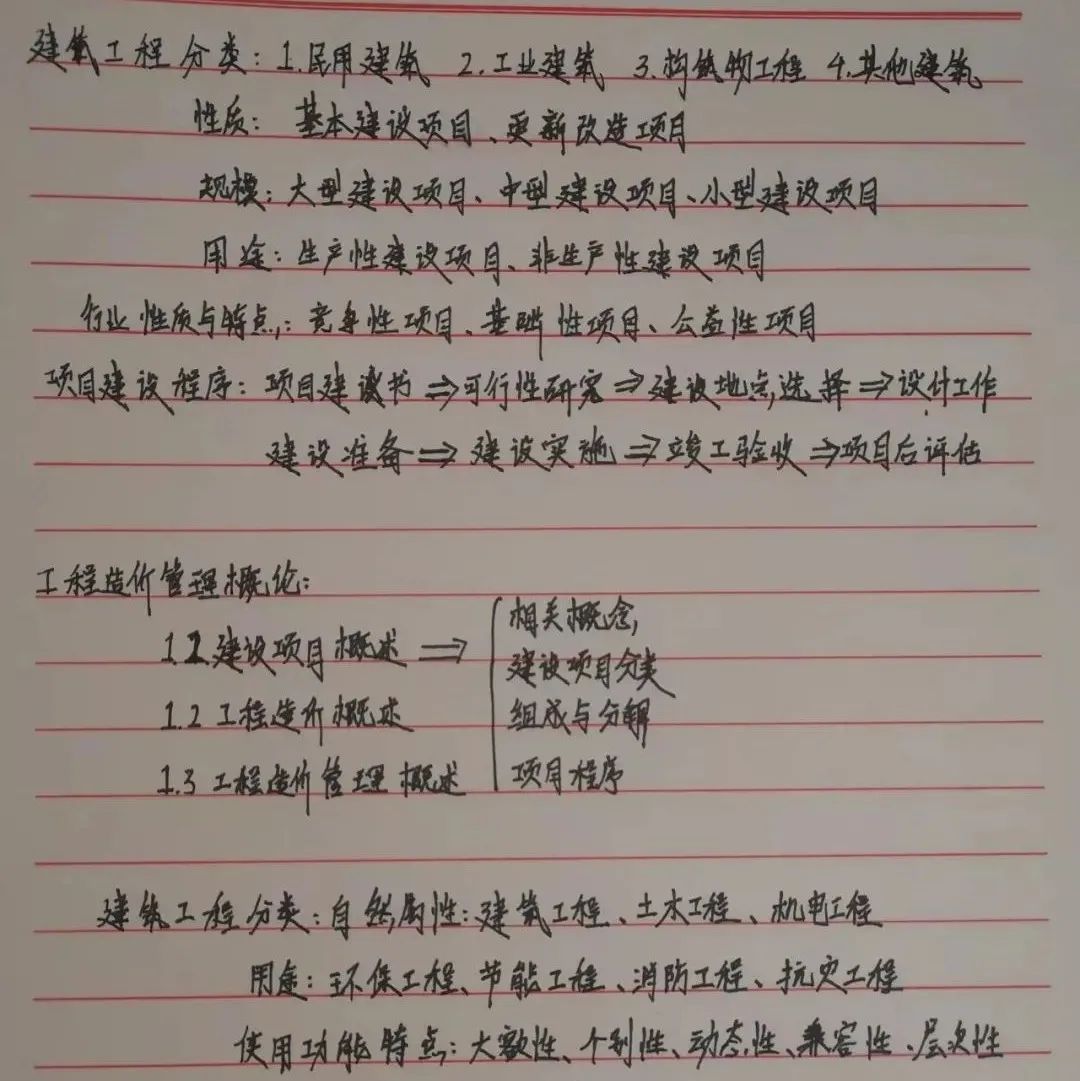 建筑工程分类：1.民用建筑 2.工业建筑 3.构筑物工程 4.其他建筑
性质：基本建设项目、更新改造项目
规模：大型建设项目、中型建设项目、小型建设项目
用途：生产性建设项目、非生产性建设项目
行业性质与特点：竞争性项目、基础性项目、公益性项目
项目建设程序：项目建议书⇒可行性研究⇒建设地点选择⇒设计工作
建设准备⇒建设实施⇒竣工验收⇒项目后评估
工程造价管理概论：
1.1建设项目概述⇒
相关概念
建设项目分类
组成与分解
项目程序
1.2 工程造价概述
1.3 工程造价管理概述
建筑工程分类：自然属性：建筑工程、土木工程、机电工程
用途：环保工程、节能工程、消防工程、抗灾工程
使用功能特点：大额性、个别性、动态性、兼容性、层次性